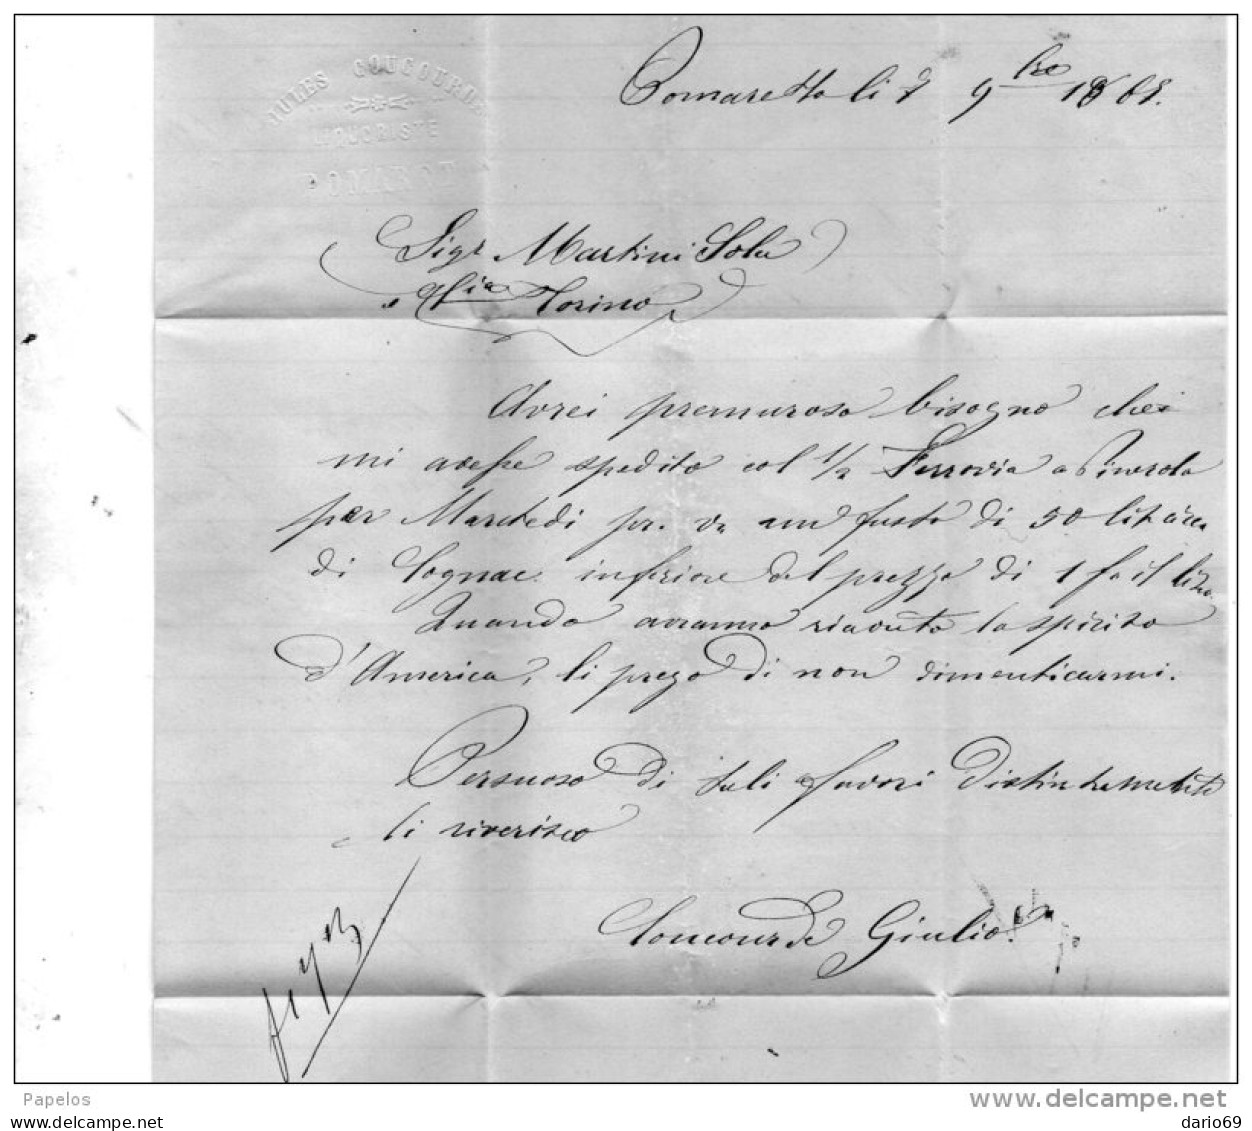 JULES COUCOURDE
LIQUORISTE
POMARET
Pomaretto li 7 9bre 1868.
Sigr Martini Sola
e Cia Torino
Avrei premuroso bisogno che
mi avesse spedito col 1/2 Ferrovia a Pinerolo
per Martedi pr. vo un fusto di 50 lit. circa
di Cognac inferiore del prezzo di 1 f. il litro.
Quando avranno riavuto lo spirito
d'America, li prego di non dimenticarmi.
Persuaso di tali favori distintamente
li riverisco
Coucourde Giulio
Papelos
www.delcampe.net
https://www.delcampe.net
dario69